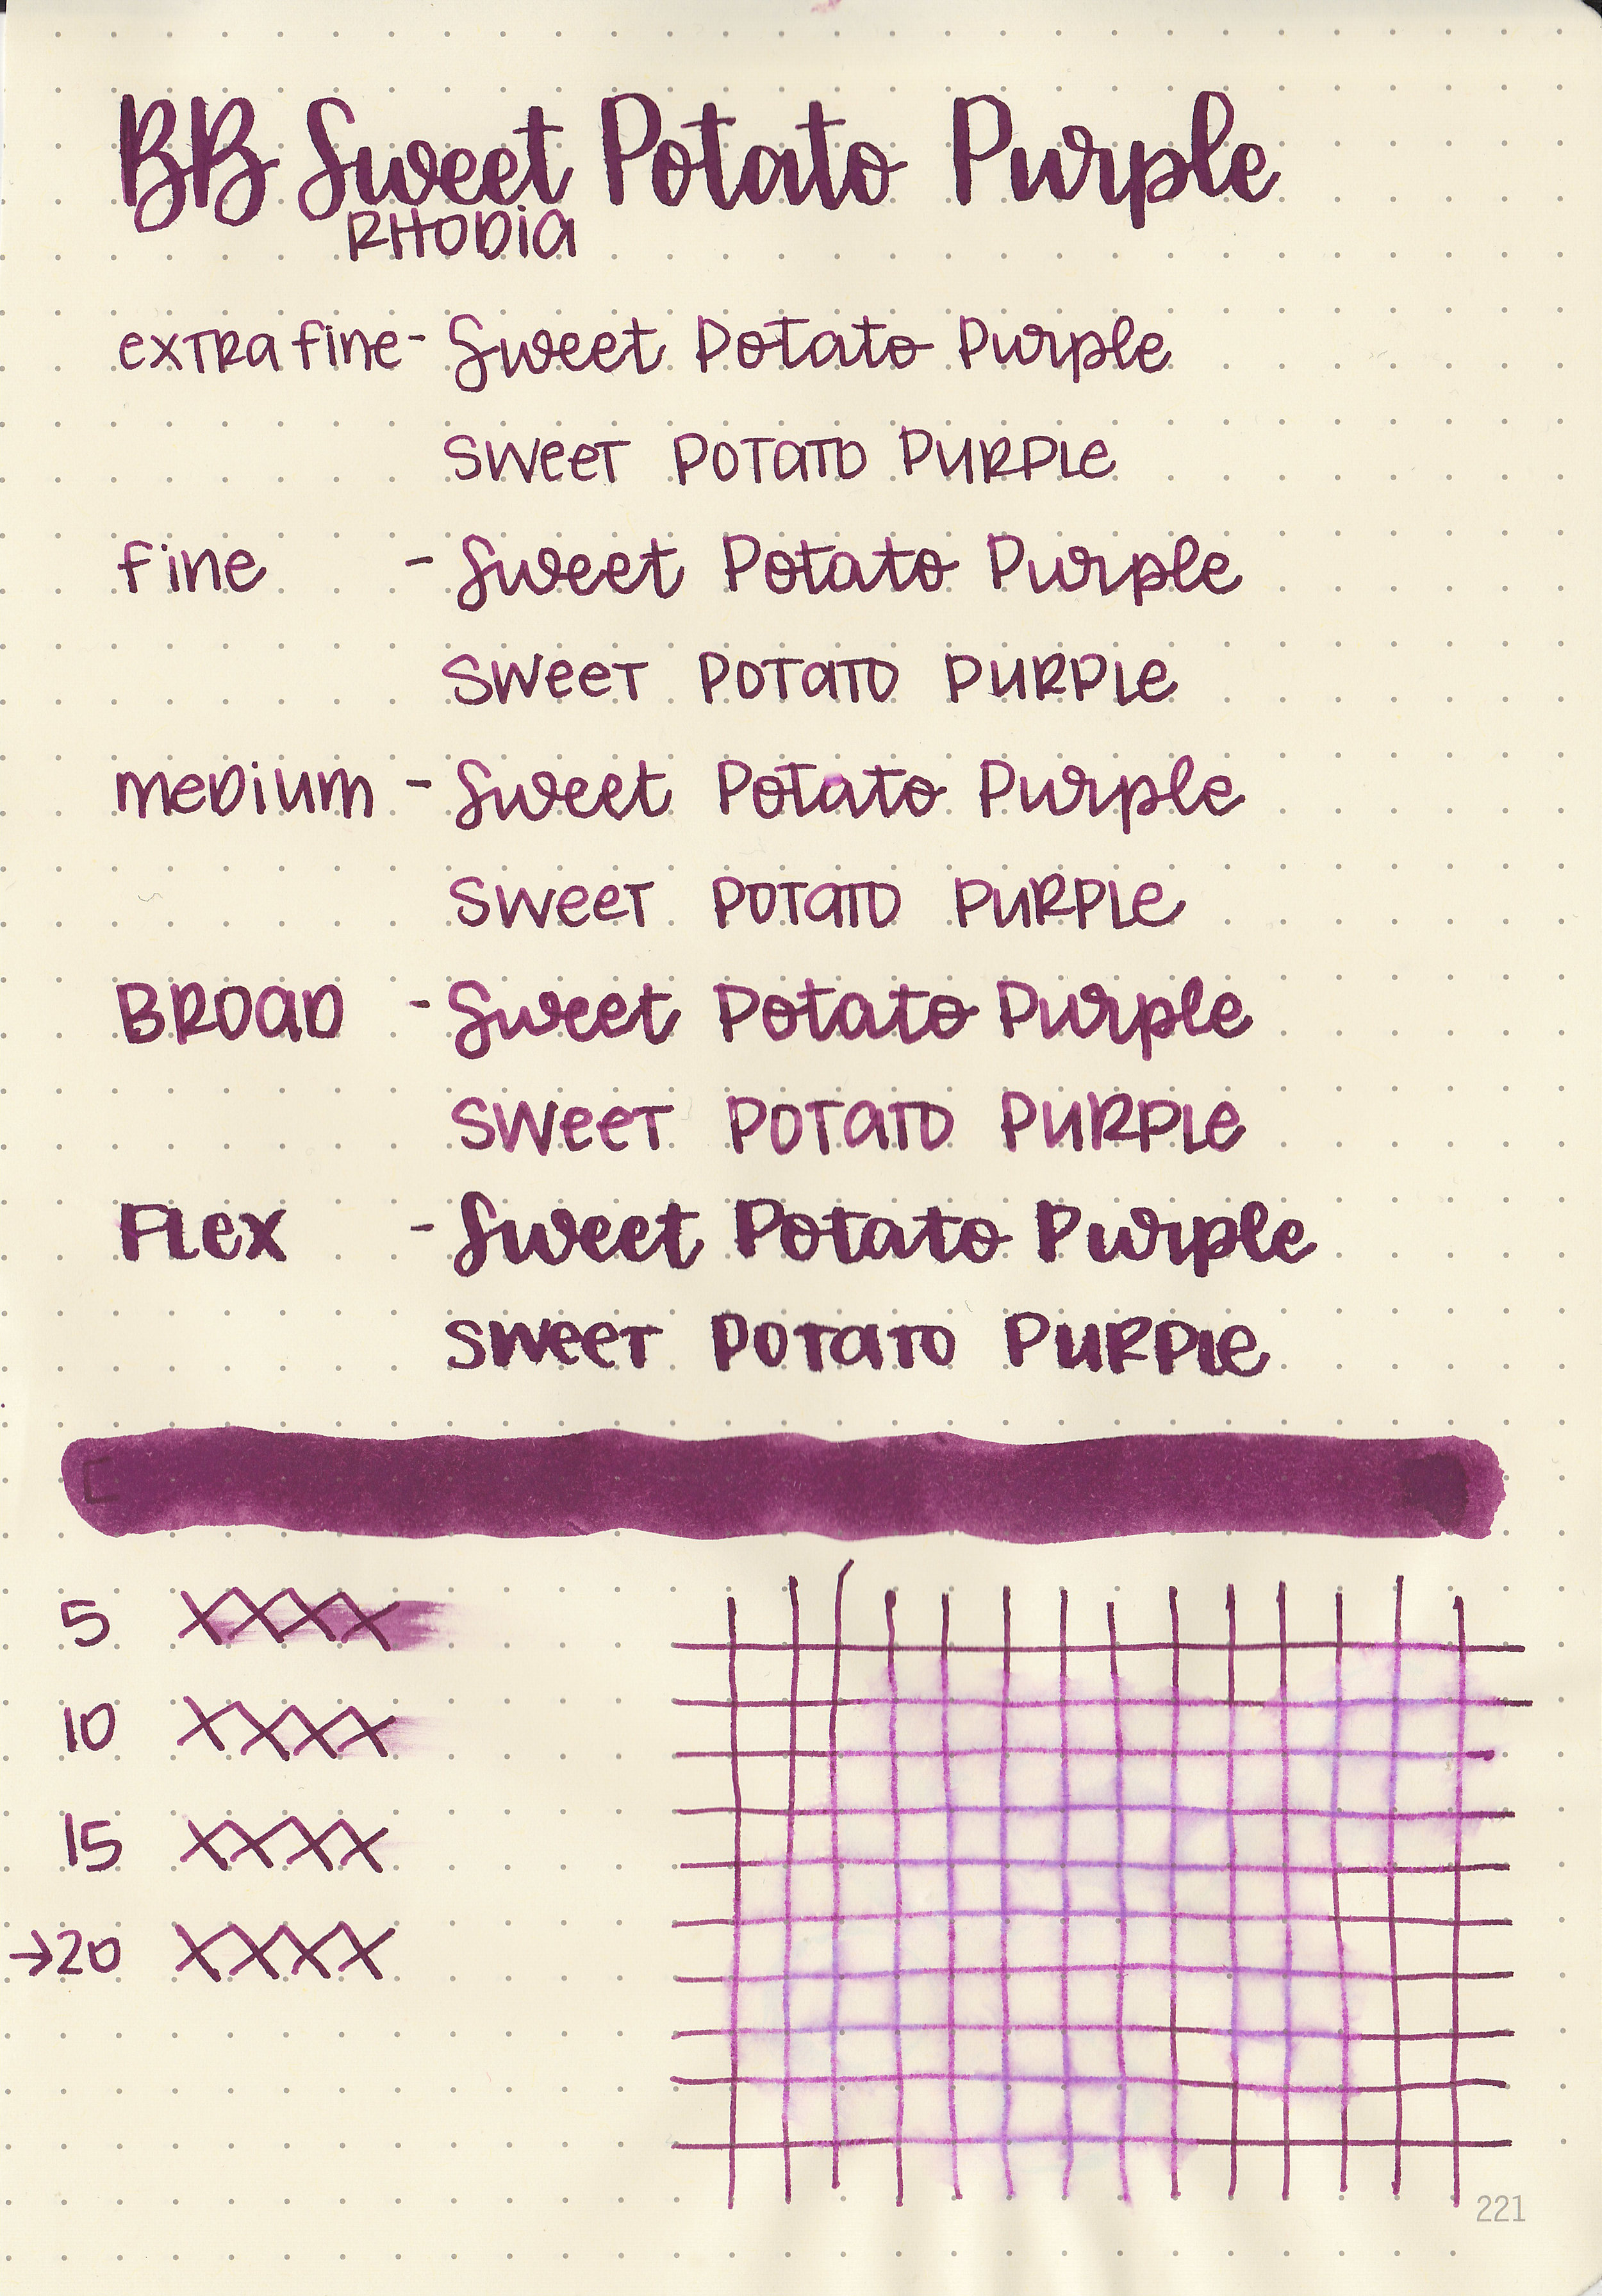 BB Sweet Potato Purple
RHODia
exTRa fine - Sweet Potato Purple
SWeeT POTaTO PURPLe
fine - Sweet Potato Purple
SWeeT POTaTO PURPLe
meDium - Sweet Potato Purple
SWeeT POTaTO PURPLe
BROaD - Sweet Potato Purple
SWeeT POTaTO PURPLe
FLex - Sweet Potato Purple
SWeeT POTaTO PURPLe
5 XXXX
10 XXXX
15 XXXX
→20 XXXX
221